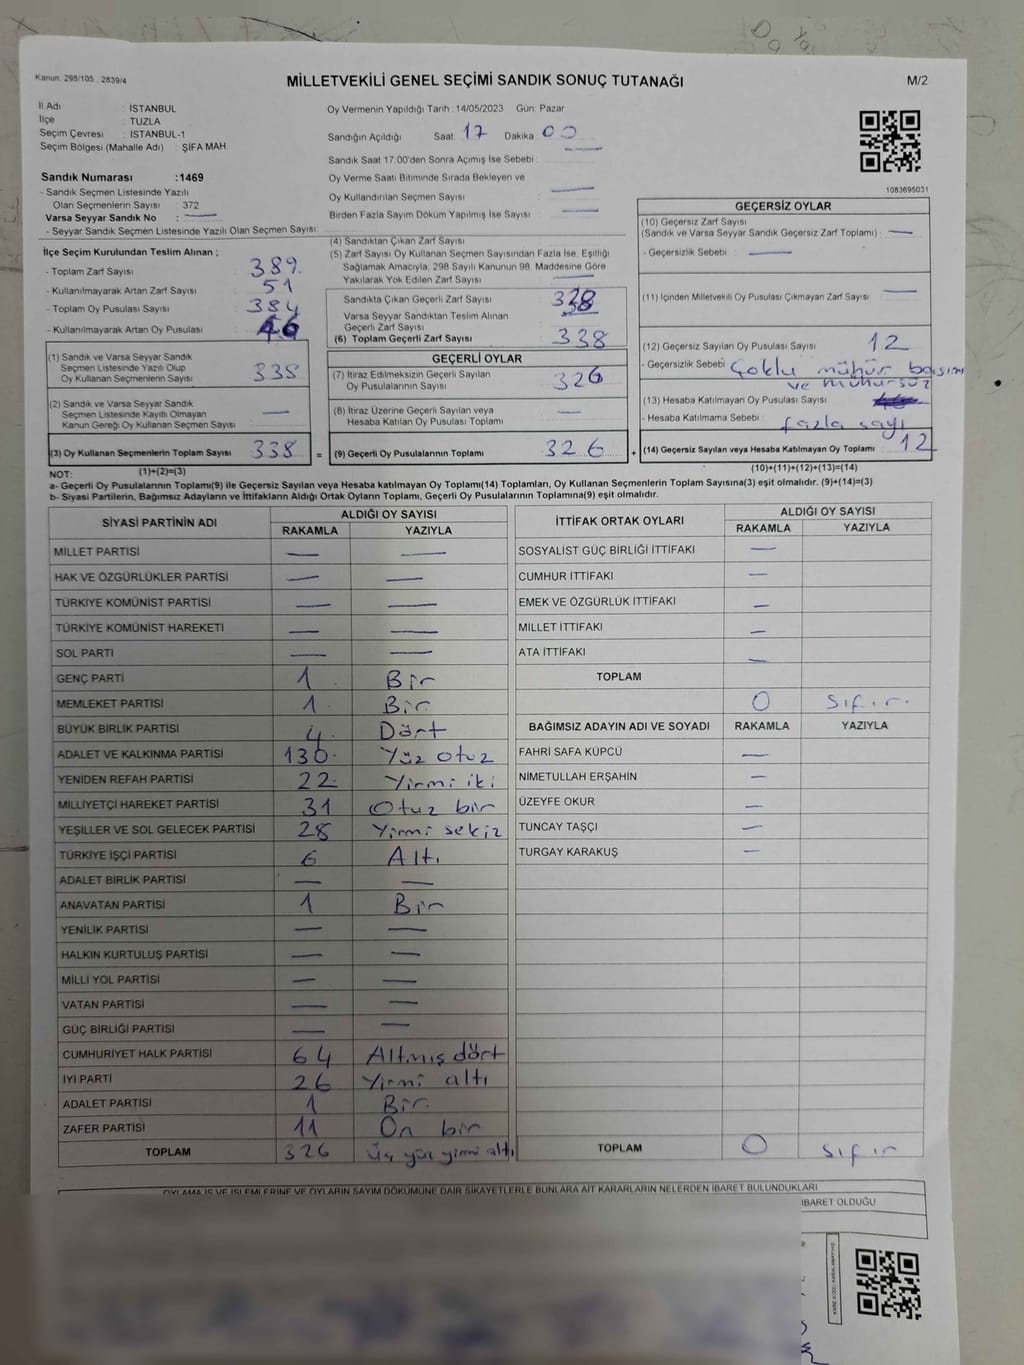 Kanun. 298/105 , 2839/4
MİLLETVEKİLİ GENEL SEÇİMİ SANDIK SONUÇ TUTANAĞI
M/2
İl Adı : İSTANBUL
İlçe : TUZLA
Seçim Çevresi : İSTANBUL-1
Seçim Bölgesi (Mahalle Adı) : ŞİFA MAH.
Oy Vermenin Yapıldığı Tarih :14/05/2023 Gün: Pazar
Sandığın Açıldığı Saat: 17 Dakika 00
Sandık Saat 17:00'den Sonra Açımış İse Sebebi :
Oy Verme Saati Bitiminde Sırada Bekleyen ve
Oy Kullandırılan Seçmen Sayısı : —
Birden Fazla Sayım Döküm Yapılmış İse Sayısı : —
1083695031
Sandık Numarası :1469
- Sandık Seçmen Listesinde Yazılı
Olan Seçmenlerin Sayısı : 372
Varsa Seyyar Sandık No : —
- Seyyar Sandık Seçmen Listesinde Yazılı Olan Seçmen Sayısı:
İlçe Seçim Kurulundan Teslim Alınan ;
- Toplam Zarf Sayısı 389
- Kullanılmayarak Artan Zarf Sayısı 51
- Toplam Oy Pusulası Sayısı 384
- Kullanılmayarak Artan Oy Pusulası 46
(1) Sandık ve Varsa Seyyar Sandık
Seçmen Listesinde Yazılı Olup
Oy Kullanan Seçmenlerin Sayısı 338
(2) Sandık ve Varsa Seyyar Sandık
Seçmen Listesinde Kayıtlı Olmayan
Kanun Gereği Oy Kullanan Seçmen Sayısı —
(3) Oy Kullanan Seçmenlerin Toplam Sayısı 338 =
(4) Sandıktan Çıkan Zarf Sayısı
(5) Zarf Sayısı Oy Kullanan Seçmen Sayısından Fazla İse, Eşitliği
Sağlamak Amacıyla, 298 Sayılı Kanunun 98. Maddesine Göre
Yakılarak Yok Edilen Zarf Sayısı —
Sandıkta Çıkan Geçerli Zarf Sayısı 338
Varsa Seyyar Sandıktan Teslim Alınan
Geçerli Zarf Sayısı
(6) Toplam Geçerli Zarf Sayısı 338
GEÇERLİ OYLAR
(7) İtiraz Edilmeksizin Geçerli Sayılan
Oy Pusulalarının Sayısı 326
(8) İtiraz Üzerine Geçerli Sayılan veya
Hesaba Katılan Oy Pusulası Toplamı —
(9) Geçerli Oy Pusulalarının Toplamı 326 +
GEÇERSİZ OYLAR
(10) Geçersiz Zarf Sayısı
(Sandık ve Varsa Seyyar Sandık Geçersiz Zarf Toplamı) : —
- Geçersizlik Sebebi : —
(11) İçinden Milletvekili Oy Pusulası Çıkmayan Zarf Sayısı : —
(12) Geçersiz Sayılan Oy Pusulası Sayısı : 12
- Geçersizlik Sebebi : Çoklu mühür basımı
ve mühürsüz
(13) Hesaba Katılmayan Oy Pusulası Sayısı :
- Hesaba Katılmama Sebebi : fazla sayı
(14) Geçersiz Sayılan veya Hesaba Katılmayan Oy Toplamı 12
NOT: (1)+(2)=(3)
(10)+(11)+(12)+(13)=(14)
a- Geçerli Oy Pusulalarının Toplamı(9) ile Geçersiz Sayılan veya Hesaba katılmayan Oy Toplamı(14) Toplamları, Oy Kullanan Seçmenlerin Toplam Sayısına(3) eşit olmalıdır. (9)+(14)=(3)
b- Siyasi Partilerin, Bağımsız Adayların ve İttifakların Aldığı Ortak Oyların Toplamı, Geçerli Oy Pusulalarının Toplamına(9) eşit olmalıdır.
SİYASİ PARTİNİN ADI ALDIĞI OY SAYISI
RAKAMLA YAZIYLA
MİLLET PARTİSİ — —
HAK VE ÖZGÜRLÜKLER PARTİSİ — —
TÜRKİYE KOMÜNİST PARTİSİ — —
TÜRKİYE KOMÜNİST HAREKETİ — —
SOL PARTİ — —
GENÇ PARTİ 1 Bir
MEMLEKET PARTİSİ 1 Bir
BÜYÜK BİRLİK PARTİSİ 4 Dört
ADALET VE KALKINMA PARTİSİ 130 Yüz otuz
YENİDEN REFAH PARTİSİ 22 Yirmi iki
MİLLİYETÇİ HAREKET PARTİSİ 31 Otuz bir
YEŞİLLER VE SOL GELECEK PARTİSİ 28 Yirmi sekiz
TÜRKİYE İŞÇİ PARTİSİ 6 Altı
ADALET BİRLİK PARTİSİ — —
ANAVATAN PARTİSİ 1 Bir
YENİLİK PARTİSİ — —
HALKIN KURTULUŞ PARTİSİ — —
MİLLİ YOL PARTİSİ — —
VATAN PARTİSİ — —
GÜÇ BİRLİĞİ PARTİSİ — —
CUMHURİYET HALK PARTİSİ 64 Altmış dört
İYİ PARTİ 26 Yirmi altı
ADALET PARTİSİ 1 Bir
ZAFER PARTİSİ 11 On bir
TOPLAM 326 Üç yüz yirmi altı
İTTİFAK ORTAK OYLARI ALDIĞI OY SAYISI
RAKAMLA YAZIYLA
SOSYALİST GÜÇ BİRLİĞİ İTTİFAKI —
CUMHUR İTTİFAKI —
EMEK VE ÖZGÜRLÜK İTTİFAKI —
MİLLET İTTİFAKI —
ATA İTTİFAKI —
TOPLAM
0 Sıfır
BAĞIMSIZ ADAYIN ADI VE SOYADI RAKAMLA YAZIYLA
FAHRİ SAFA KÜPCÜ —
NİMETULLAH ERŞAHİN —
ÜZEYFE OKUR —
TUNCAY TAŞÇI —
TURGAY KARAKUŞ —
TOPLAM 0 Sıfır
OYLAMA İŞ VE İŞLEMLERİNE VE OYLARIN SAYIM DÖKÜMÜNE DAİR ŞİKAYETLERLE BUNLARA AİT KARARLARIN NELERDEN İBARET BULUNDUKLARI
İBARET OLDUĞU